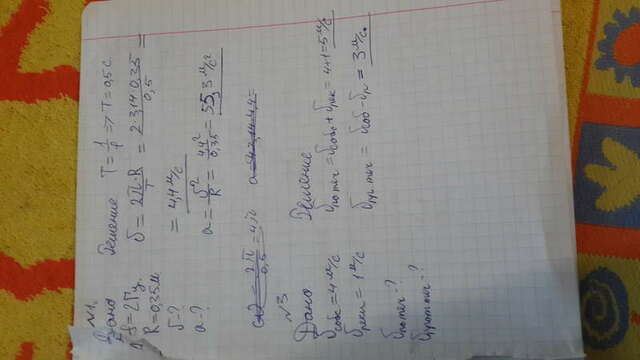 №1.
Дано
f = 2Гц.
R = 0,35м
υ - ?
a - ?
Решение T = 1/f => T = 0,5 с.
υ = 2π·R/T = 2·3,14·0,35/0,5 =
= 4,4 м/с
a = υ²/R = 4,4²/0,35 = 55,3 м/с²
= 2π/0,5 = 4π
№3
Дано
υсобс = 4 м/с
υреки = 1 м/с
υпо теч - ?
υпрот теч - ?
Решение
υпо теч = υсобс + υрек = 4+1 = 5 м/с
υпр. теч = υсоб - υр = 3 м/с.